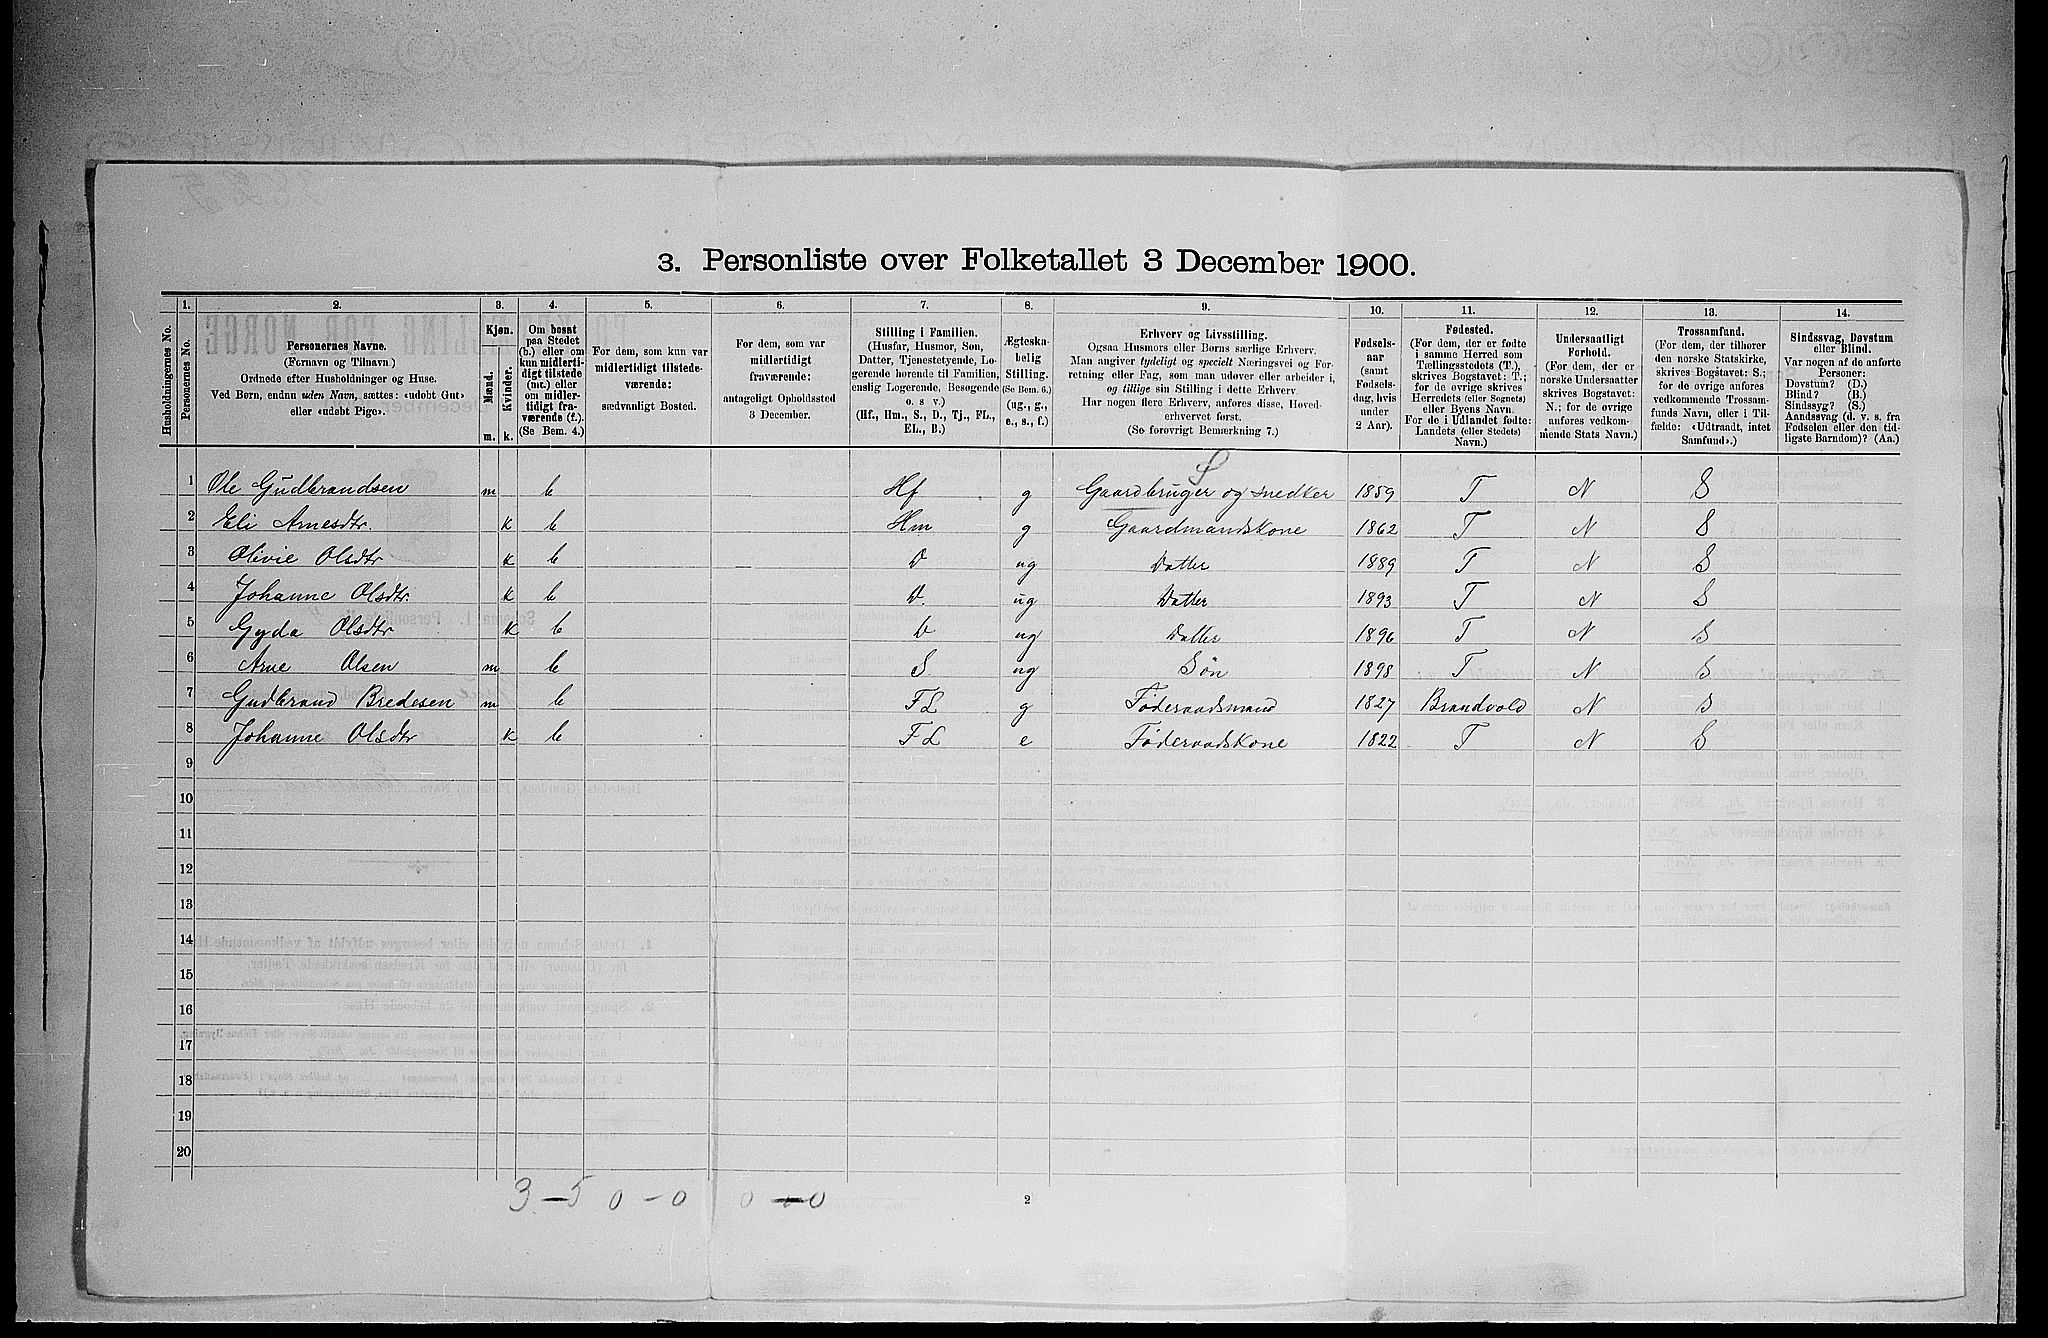 3. Personliste over Folketallet 3 December 1900.
1. 2. 3. 4. 5. 6. 7. 8. 9. 10. 11. 12. 13. 14.
Husholdningernes No.
Personernes No.
Personernes Navne.
(Fornavn og Tilnavn)
Ordnede efter Husholdninger og Huse.
Ved Børn, endnu uden Navn, sættes: «udøbt Gut»
eller «udøbt Pige».
Kjøn.
Mænd.
Kvinder.
m. k.
Om bosat
paa Stedet
(b.) eller om
kun midlerti-
digt tilstede
(mt.) eller
om midler-
tidigt fra-
værende (f.).
(Se Bem. 4.)
For dem, som kun var
midlertidigt tilstede-
værende:
sædvanligt Bosted.
For dem, som var
midlertidigt
fraværende:
antageligt Opholdssted
3 December.
Stilling i Familien.
(Husfar, Husmor, Søn,
Datter, Tjenestetyende, Lo-
gerende hørende til Familien,
enslig Logerende, Besøgende
o. s v.)
(Hf., Hm., S., D., Tj., FL.,
EL., B.)
Ægteska-
belig
Stilling.
(Se Bem. 6.)
(ug., g.,
e., s., f.)
Erhverv og Livsstilling.
Ogsaa Husmors eller Børns særlige Erhverv.
Man angiver tydeligt og specielt Næringsvei og For-
retning eller Fag, som man udøver eller arbeider i,
og tillige sin Stilling i dette Erhverv.
Har nogen flere Erhverv, anføres disse, Hoved-
erhvervet først.
(Se forøvrigt Bemærkning 7.)
Fødsels-
aar
(samt
Fødsels-
dag, hvis
under
2 Aar).
Fødested.
(For dem, der er fødte
i samme Herred som
Tællingsstedets (T.),
skrives Bogstavet: T.;
for de øvrige skrives
Herredets (eller Sognets)
eller Byens Navn.
For de i Udlandet fødte:
Landets (eller Stedets)
Navn.)
Undersaatligt
Forhold.
(For dem, der er
norske Undersaatter
skrives Bogstavet:
N.; for de øvrige
anføres vedkom-
mende Stats Navn.)
Trossamfund.
(For dem, der tilhører
den norske Statskirke,
skrives Bogstavet: S.;
for de øvrige anføres
vedkommende Trossam-
funds Navn, eller i Til-
fælde: «Udtraadt, intet
Samfund».)
Sindssvag, Døvstum
eller Blind.
Var nogen af de anførte
Personer:
Døvstum? (D.)
Blind? (B.)
Sindssyg? (S.)
Aandssvag (d. v. s. fra
Fødselen eller den tid-
ligste Barndom)? (Aa.)
S
1 Ole Gudbrandsen m b Hf g Gaardbruger og snedker 1859 T N S
2 Eli Arnesdtr. k b Hm g Gaardmandskone 1862 T N S
3 Olivie Olsdtr k b D ug Datter 1889 T N S
4 Johanne Olsdtr. k b D. ug Datter 1893 T N S
5 Gyda Olsdtr k b D ug Datter 1896 T N S
6 Arne Olsen m b S. ug Søn 1898 T N S
7 Gudbrand Bredesen m b FL g Føderaadsmand 1827 Brandvold N S
8 Johanne Olsdtr k b FL e Føderaadskone 1822 T N S
9
10
11
12
13
14
15
16
17
18
19
20
3 - 5 0 - 0 0 - 0
2